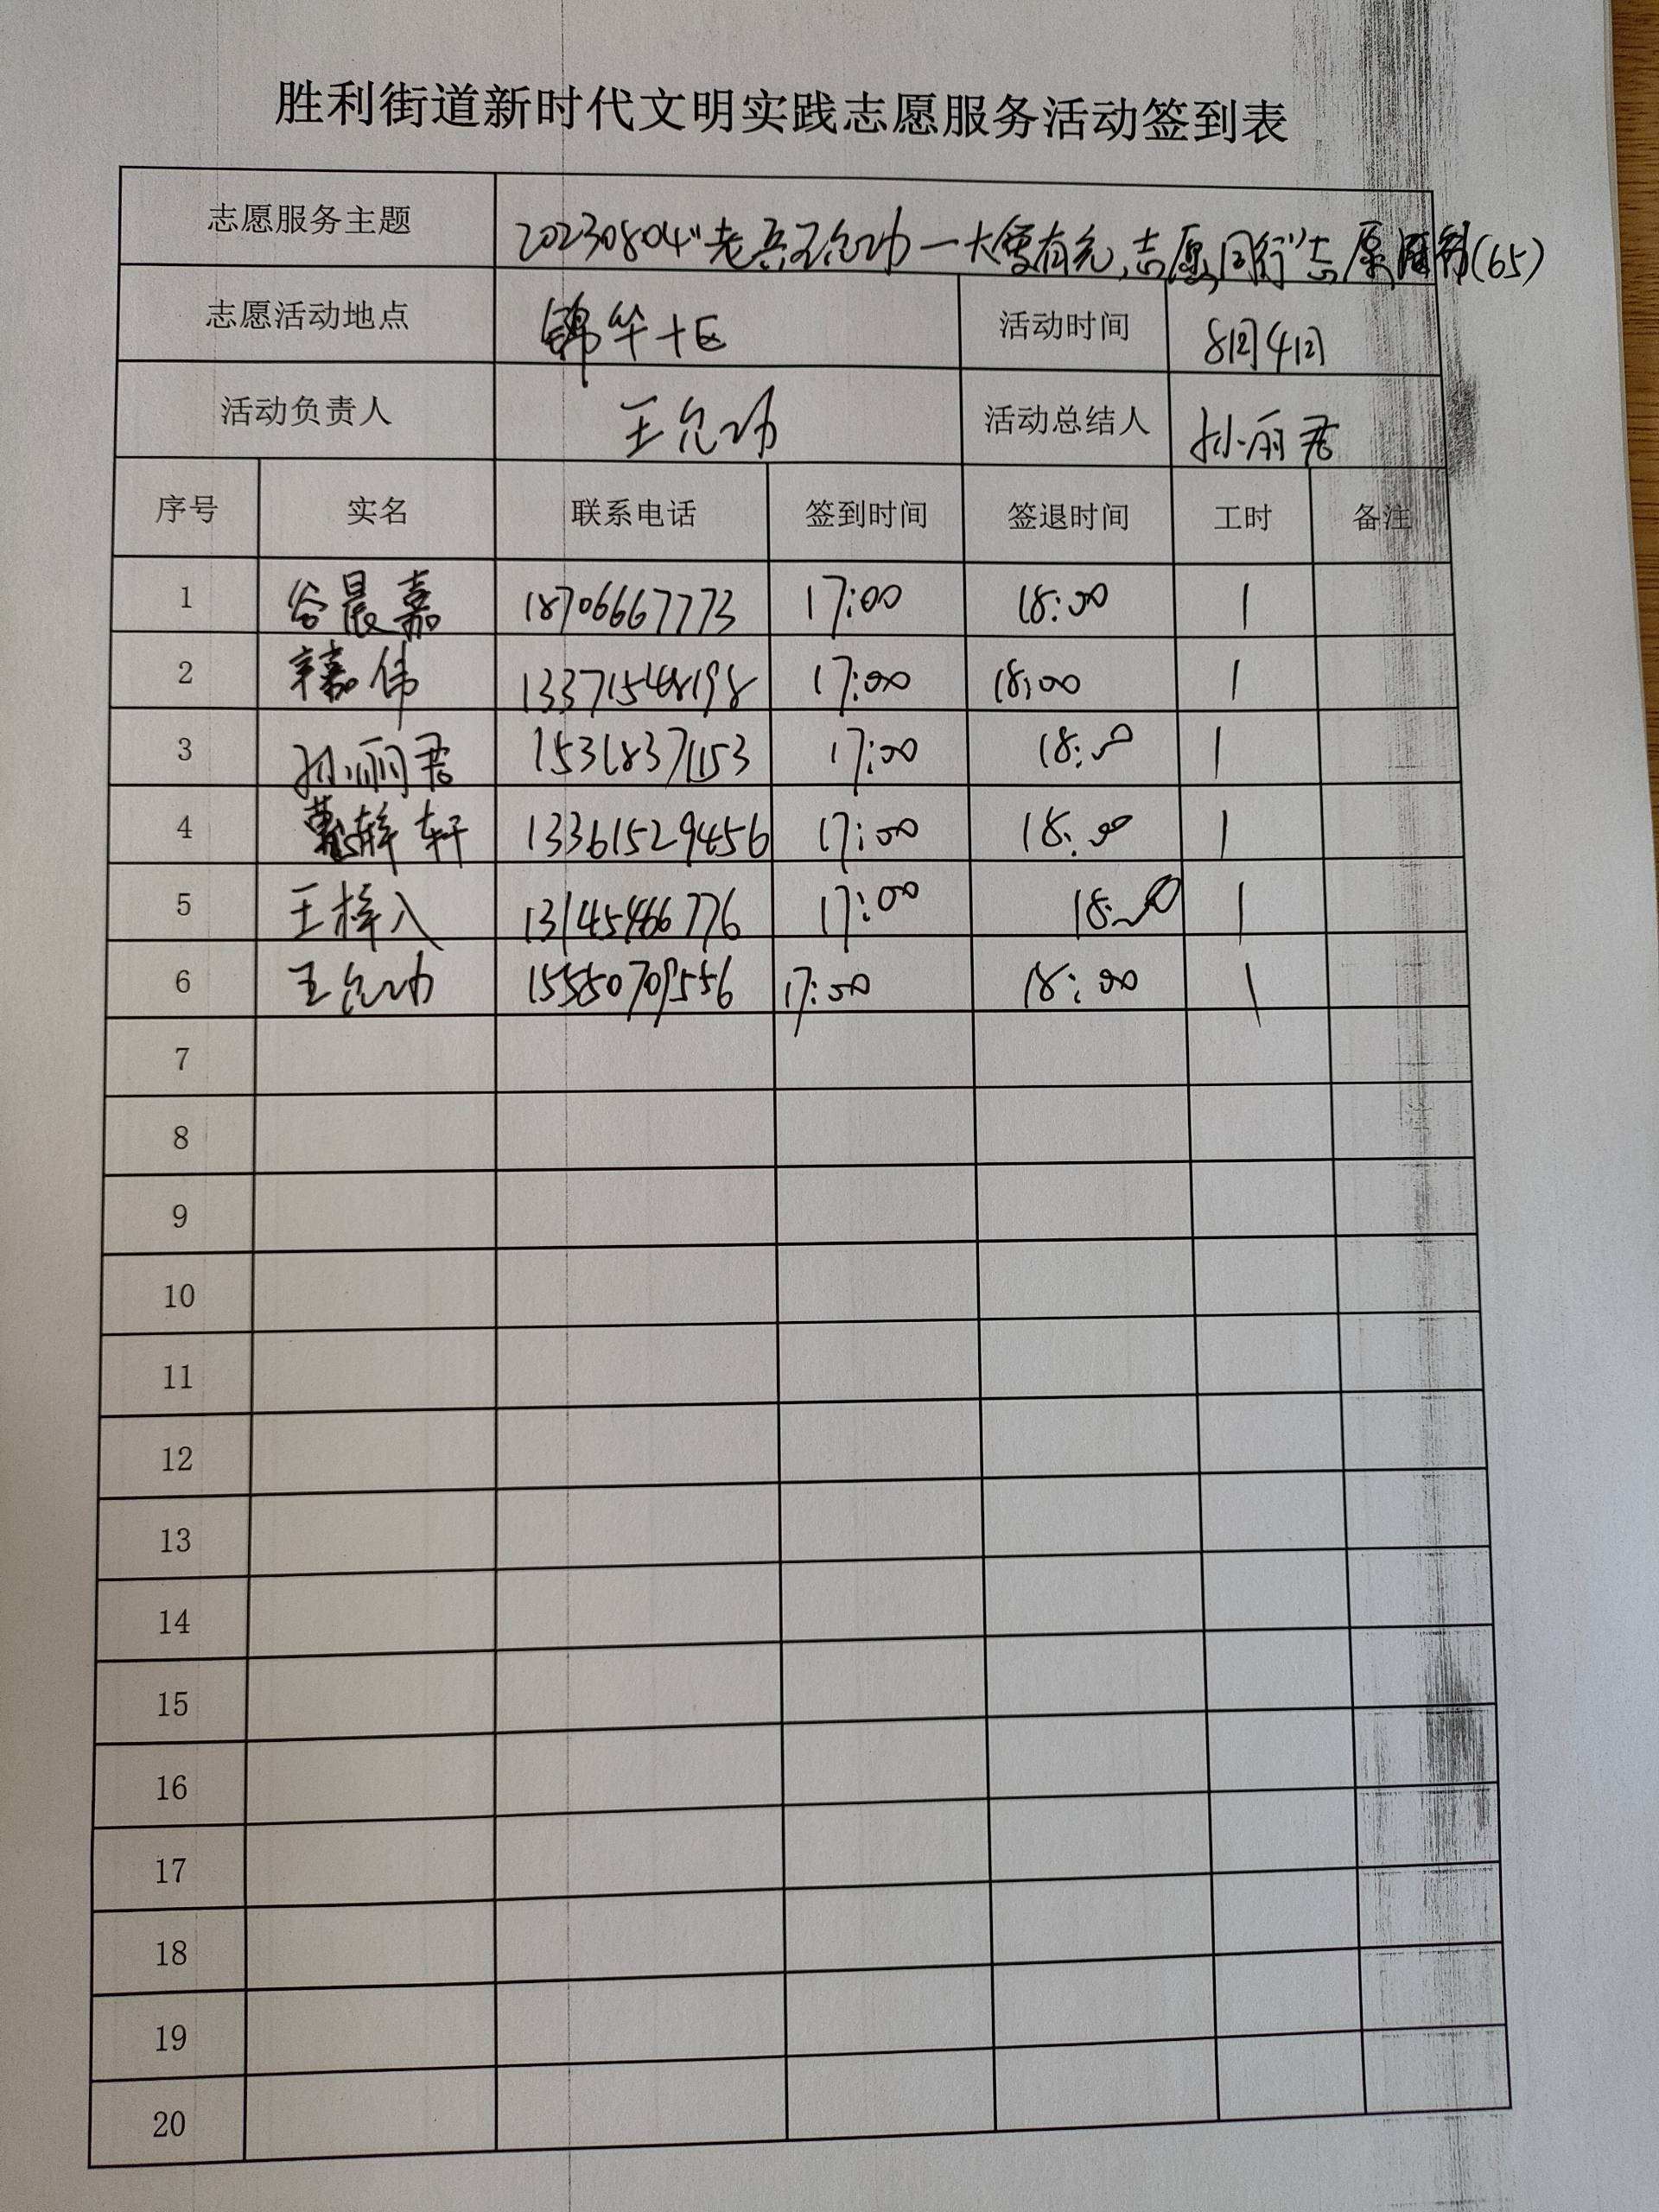 胜利街道新时代文明实践志愿服务活动签到表
志愿服务主题 20230804"老兵王允功一大爱有光,志愿同行"志愿服务(65)
志愿活动地点 锦华十区 活动时间 8月4日
活动负责人 王允功 活动总结人 孙丽君
序号 实名 联系电话 签到时间 签退时间 工时 备注
1 谷晨嘉 18706667773 17:00 18:00 1
2 辛嘉伟 13371548198 17:00 18:00 1
3 孙丽君 15318371153 17:00 18:00 1
4 轩 13361529456 17:00 18:00 1
5 王梓入 13145466776 17:00 18:00 1
6 王允功 15550709556 17:00 18:00 1
7
8
9
10
11
12
13
14
15
16
17
18
19
20